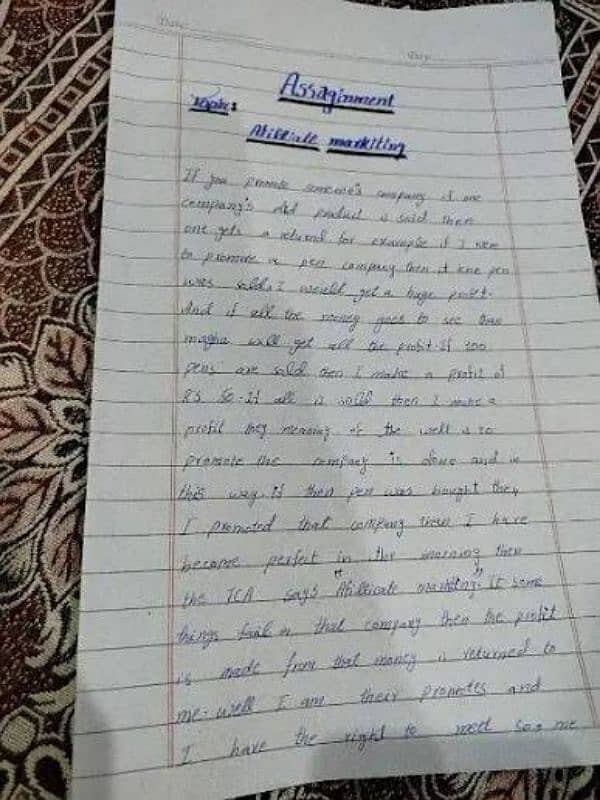 Date
Day
Assaginment
Topic:
Afilliate markiting
If you promote someone's company if one
company's Ad product is sold then
one gets a refund for example if I were
to promote a pen company then if one pen
was sold, I would get a huge profit.
And if all the money goes to see than
will get all the profit. If 200
pens are sold then I make a profit of
RS 50. If all is sold then I make a
profit they meaning of the well is to
promote the company is done and in
this way. If then pen was bought then
I promoted that company then I have
became perfect in the morning then
the ICA says "Afilliate marketing". If some
things in that company then the profit
is made from that money is returned to
me. well I am their promotes and
I have the right to me